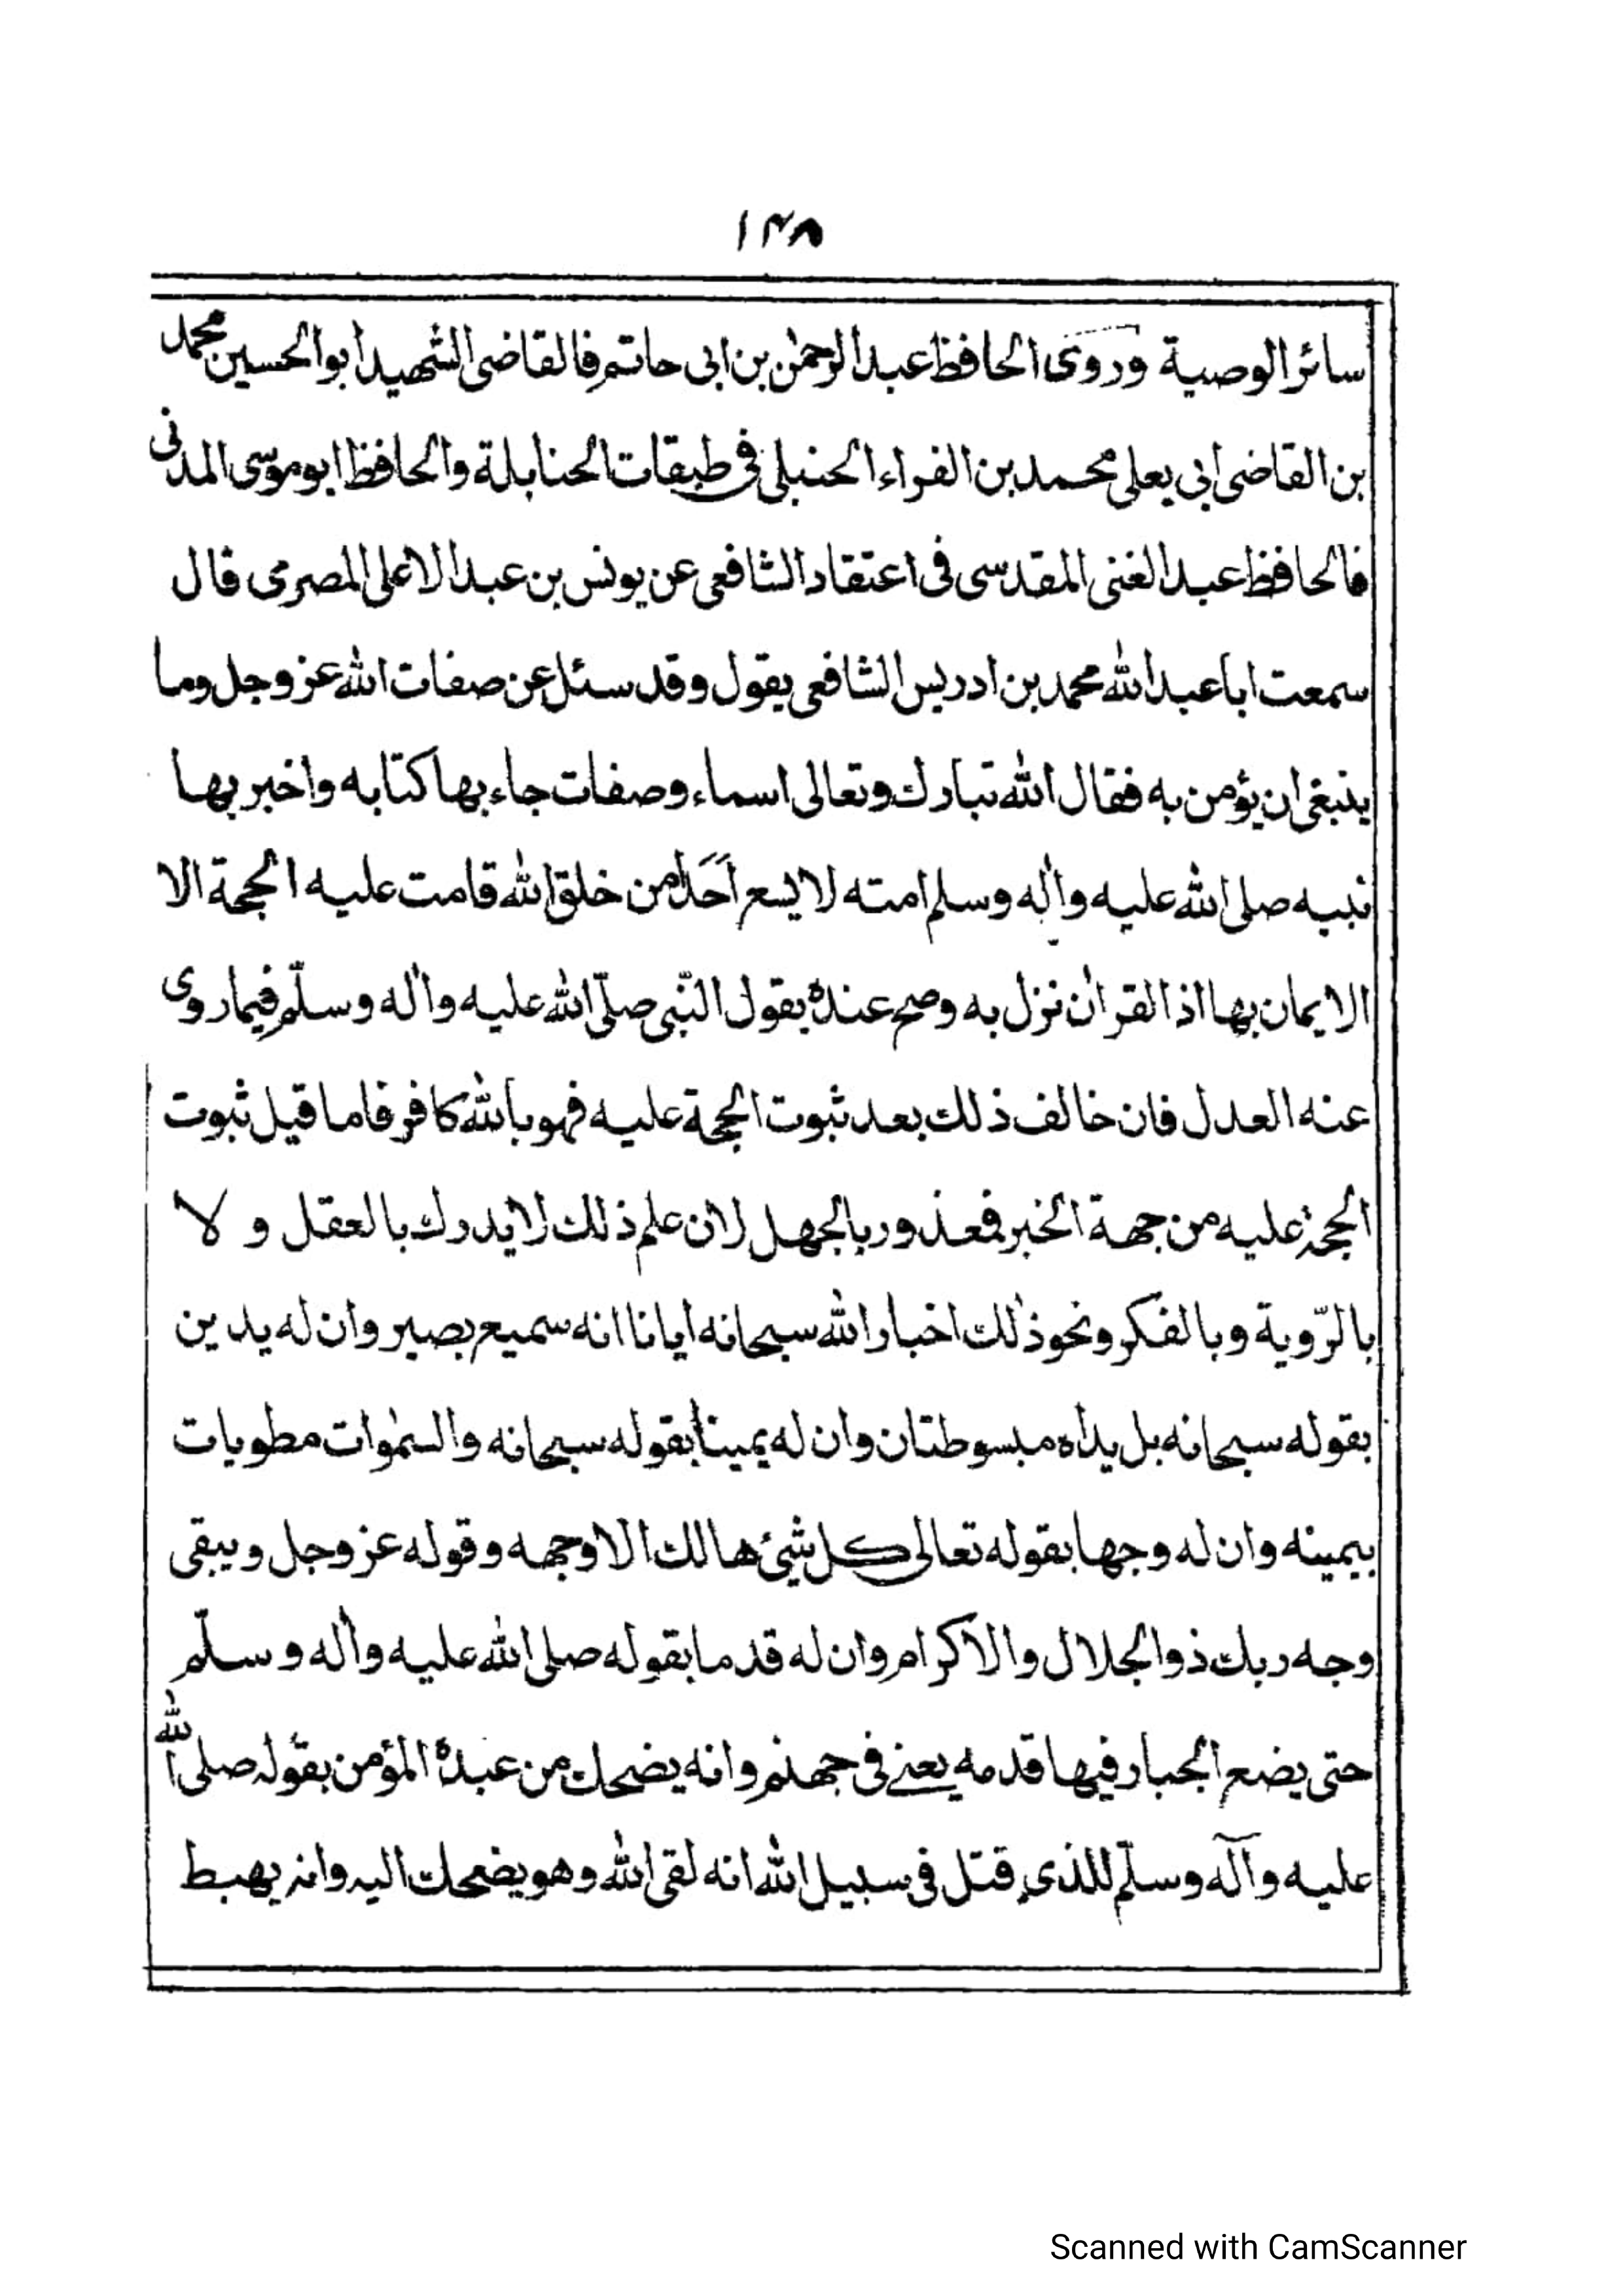 ۱۴۸
سائر الوصية وروى الحافظ عبد الرحمٰن بن ابى حاتم فالقاضى الشهيد أبو الحسين محمد
بن القاضى ابى يعلى محمد بن الفراء الحنبلى فى طبقات الحنابلة والحافظ ابو موسى المدنى
فالحافظ عبد الغنى المقدسى فى اعتقاد الشافعى عن يونس بن عبد الاعلى المصرى قال
سمعت ابا عبد الله محمد بن ادريس الشافعى يقول وقد سئل عن صفات الله عز وجل وما
ينبغى ان يؤمن به فقال الله تبارك وتعالى اسماء وصفات جاء بها كتابه واخبر بها
نبيه صلى الله عليه واٰله وسلم امته لا يسع اَحَداً من خلق الله قامت عليه الحجة الا
الايمان بها اذ القراٰن نزل به وصح عندهٗ بقول النّبى صلّى الله عليه واٰله وسلّم فيما روى
عنه العدل فان خالف ذلك بعد ثبوت الحجة عليه فهو بالله كافر فاما قيل ثبوت
الحجة عليه من جهة الخبر فمعذور بالجهل لان علم ذلك لا يدرك بالعقل و لا
بالرّوية وبالفكر ونحو ذٰلك اخبار الله سبحانه ايانا انه سميع بصير وان له يدين
بقوله سبحانه بل يداه مبسوطتان وان له يميناً بقوله سبحانه والسمٰوات مطويات
بيمينه وان له وجها بقوله تعالى كل شئ هالك الا وجهه وقوله عز وجل ويبقى
وجه ربك ذوالجلال والاكرام وان له قدما بقوله صلى الله عليه واٰله وسلّم
حتى يضع الجبار فيها قدمه يعنى فى جهنم وانه يضحك من عبدهٗ المؤمن بقوله صلى الله
عليه وآله وسلّم للذى قتل فى سبيل الله انه لقى الله وهو يضحك اليه وانه يهبط
Scanned with CamScanner